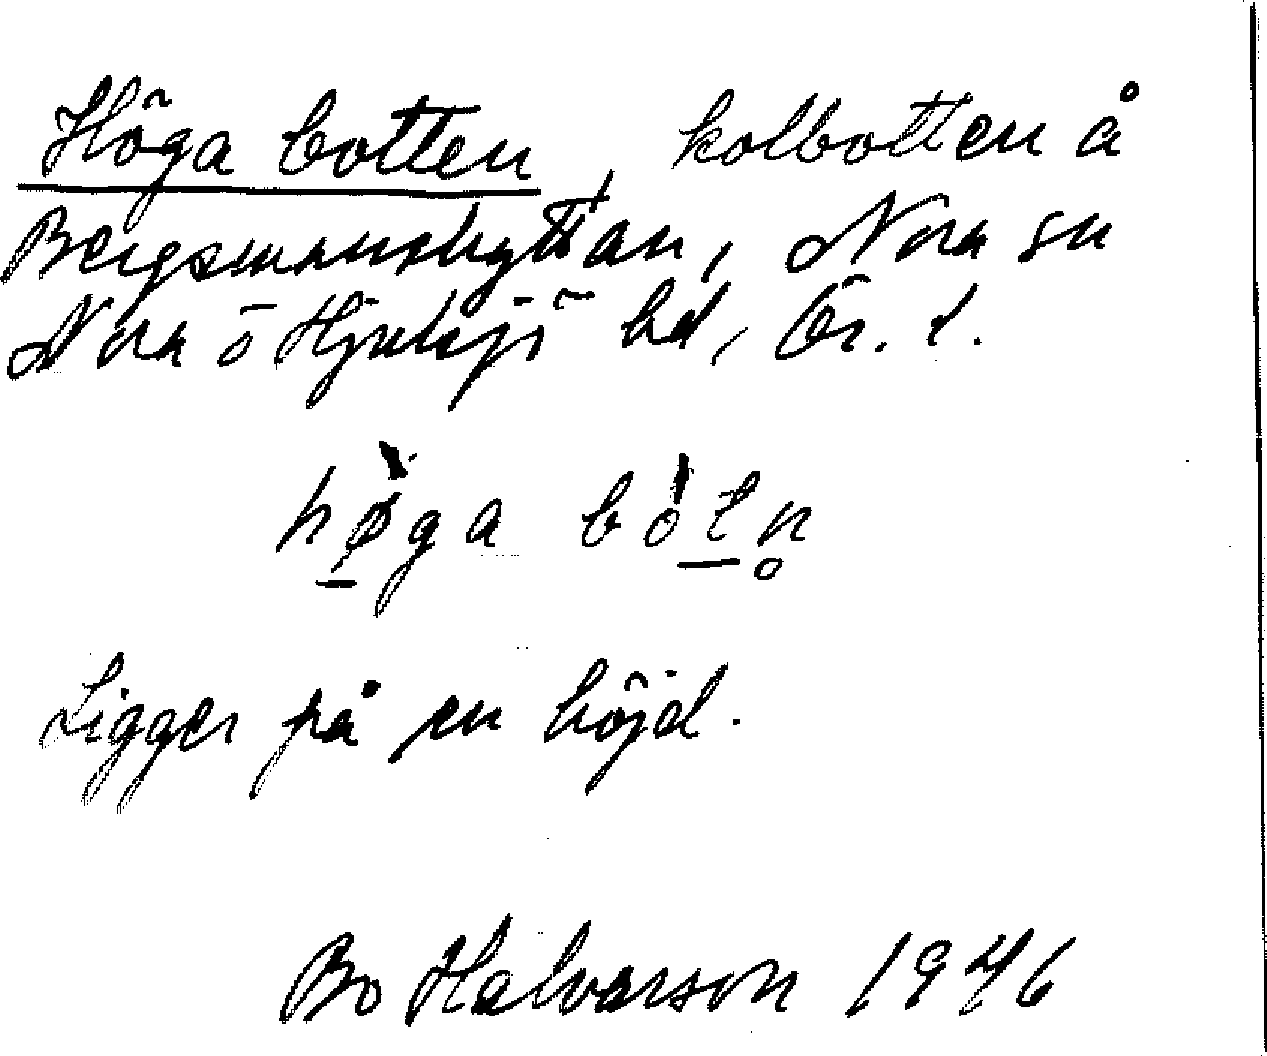 Höga botten, kolbotten å
Bergsmanshyttan, Nora sn
Nora o Hjulsjö bd, Ör. l.
hø̱̀ga bòt̲n̥
Ligger på en höjd.
Bo Halvarson 1946